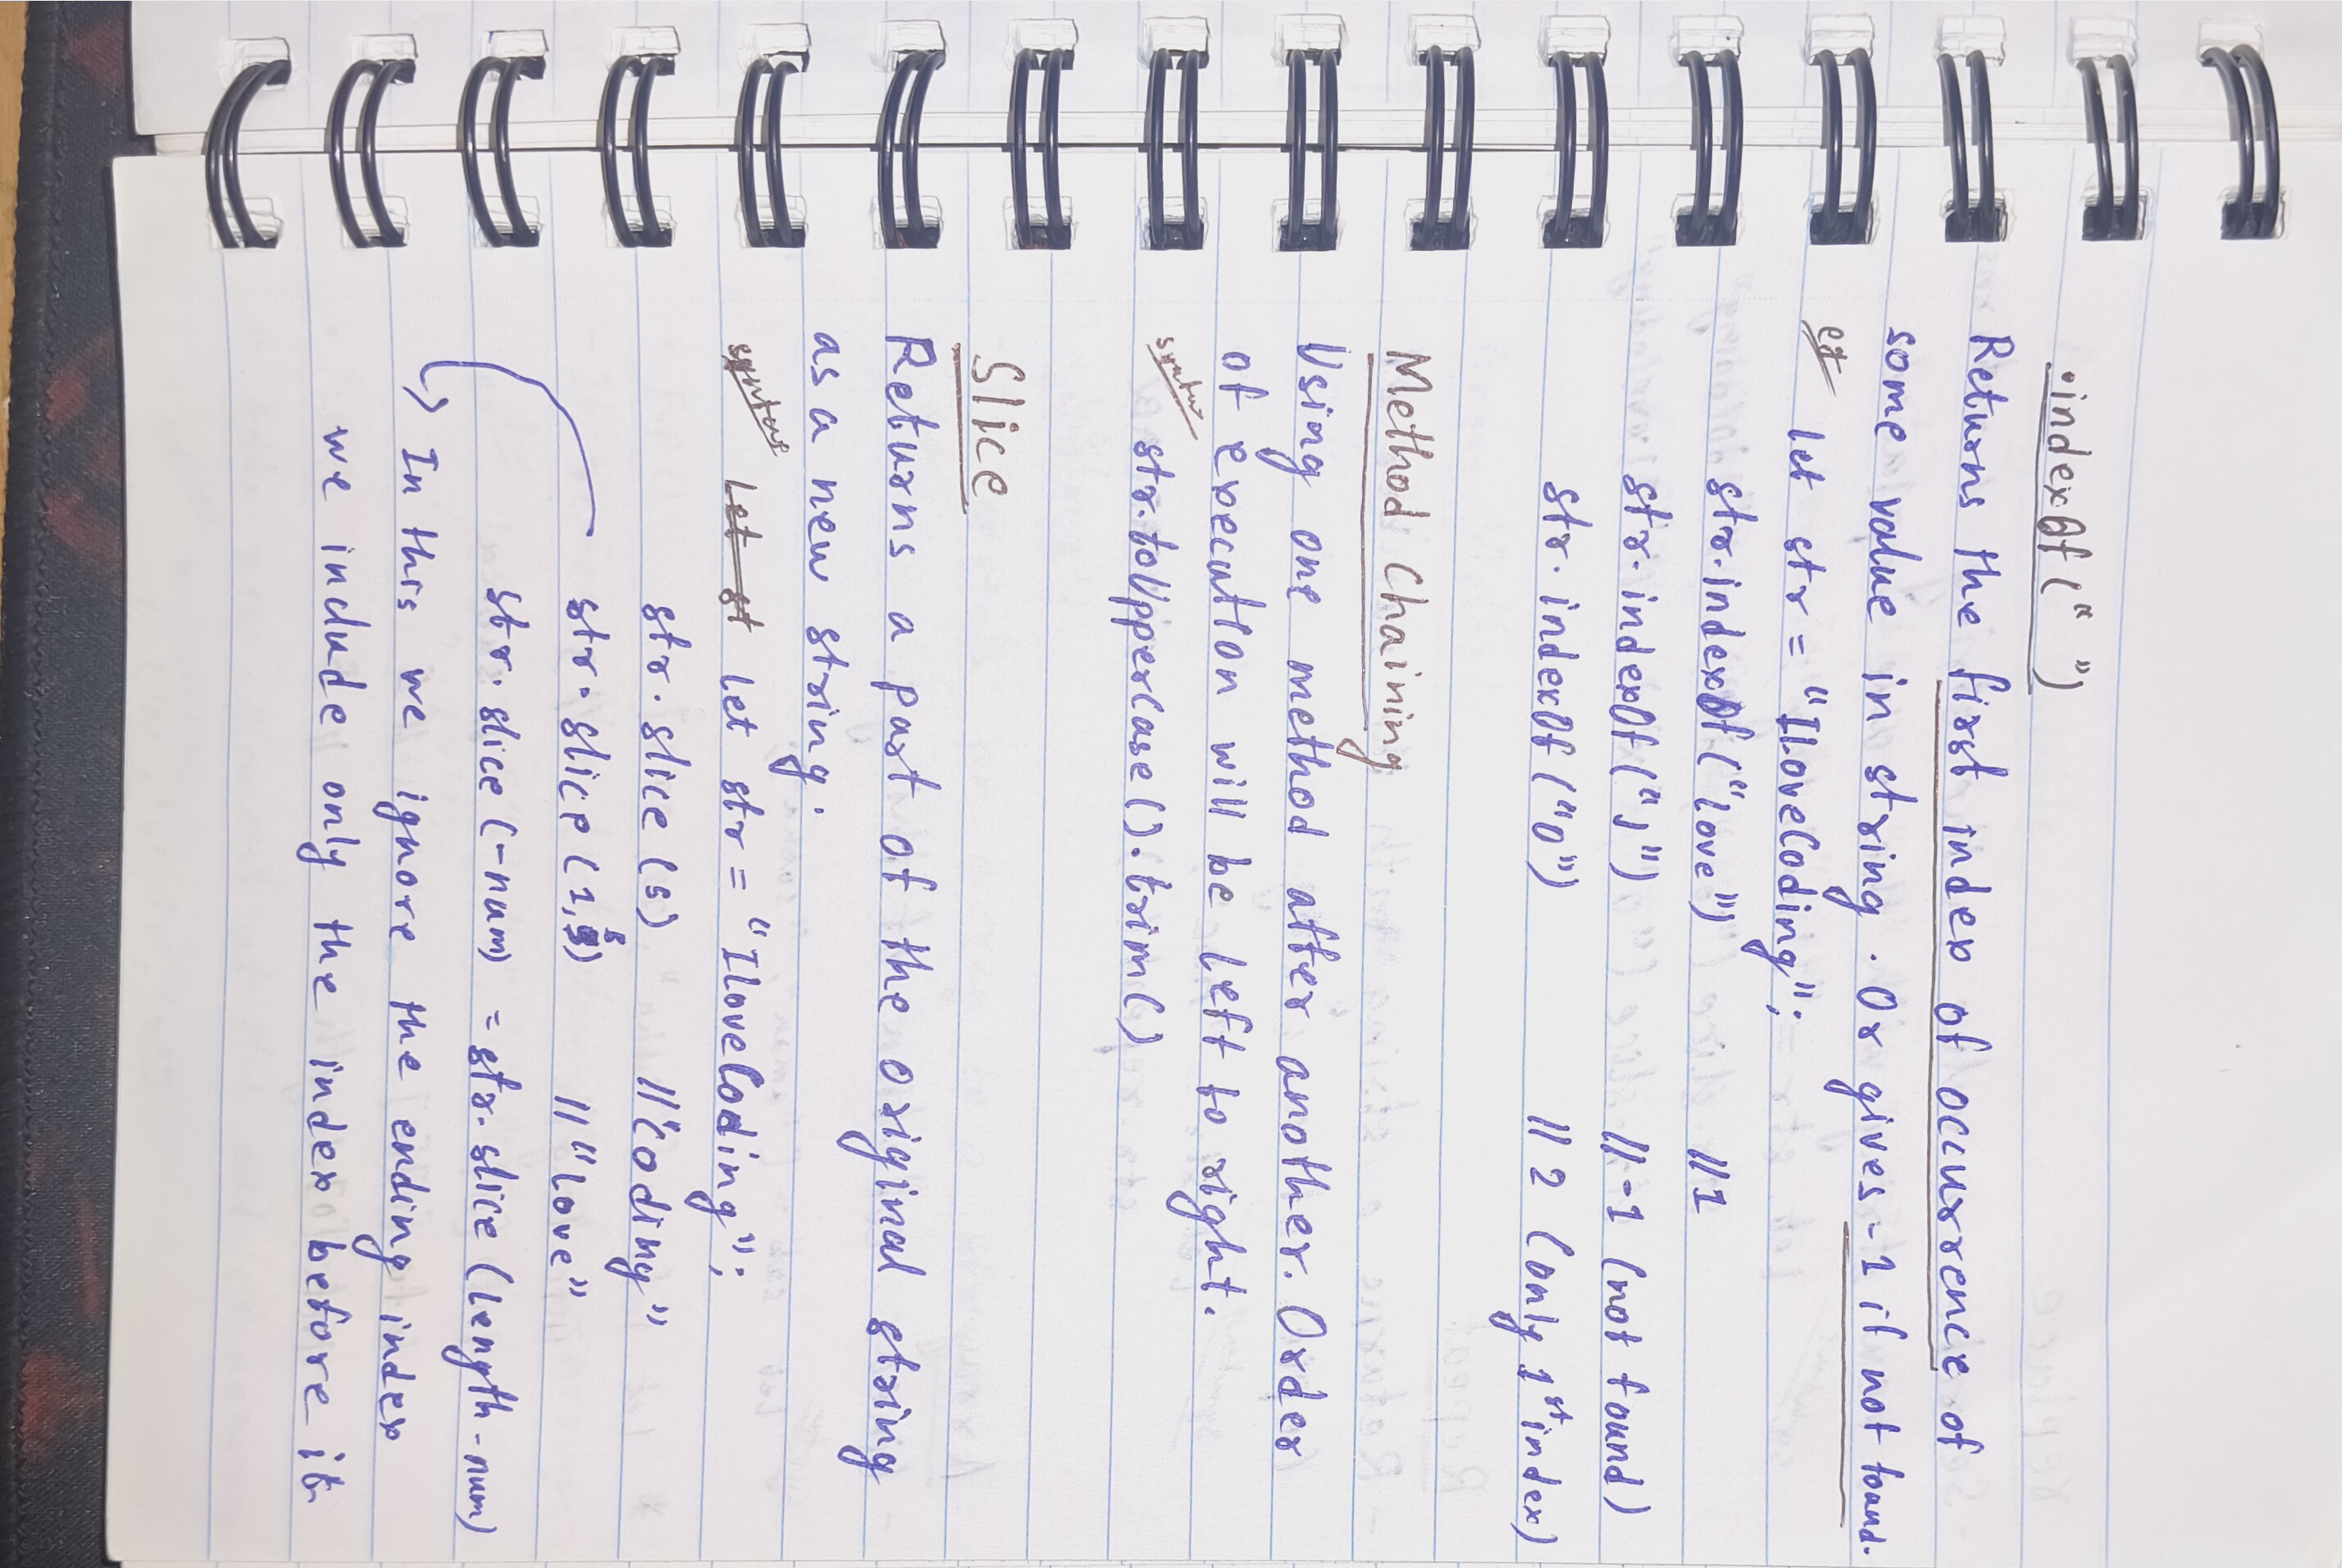 .indexOf(“ ”)
Returns the first index of occurrence of
some value in string. Or gives -1 if not found.
eg
let str = “ILoveCoding”;
str.indexOf(“love”) //1
str.indexOf(“J”) //-1 (not found)
str.indexOf(“o”) //2 (only 1st index)
Method Chaining
Using one method after another. Order
of execution will be left to right.
syntax
str.toUpperCase().trim()
Slice
Returns a part of the original string
as a new string.
syntax Let st let str = “IloveCoding”;
str.slice(5) //“Coding”
str.slice(1,5) //“love”
str.slice(-num) = str.slice(length-num)
In this we ignore the ending index
we include only the index before it